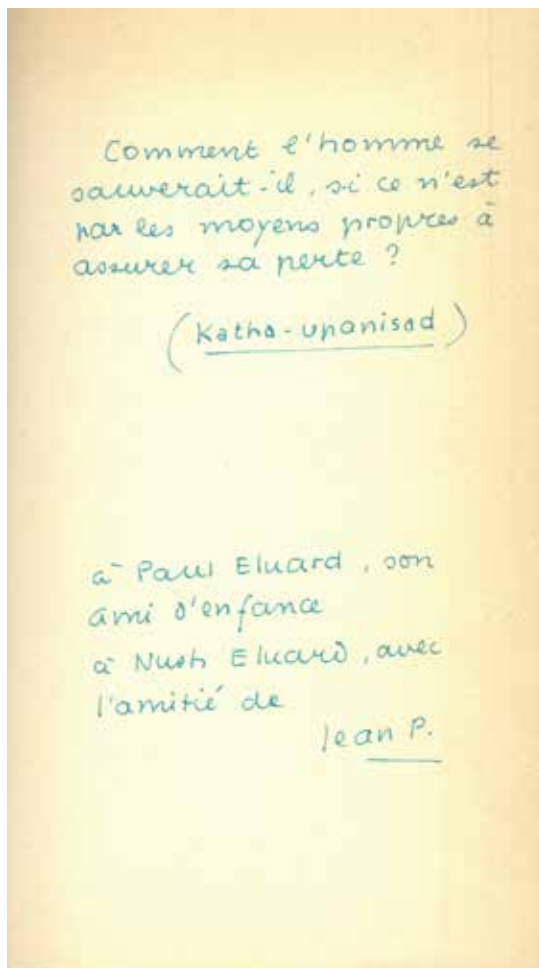 Comment l'homme se
sauverait-il, si ce n'est
par les moyens propres à
assurer sa perte ?
(Katha-upanisad)
à Paul Eluard, son
ami d'enfance
à Nush Eluard, avec
l'amitié de
Jean P.